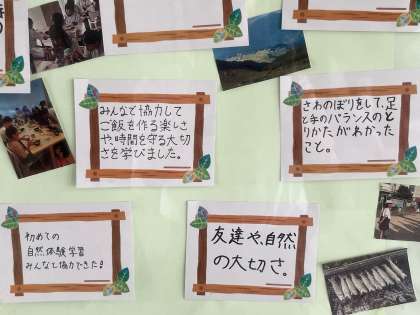 みんなで協力して
ご飯を作る楽しさ
や、時間を守る大切
さを学びました。
さわのぼりをして、足
と手のバランスのと
りかたがわかった
こと。
初めての
自然体験学習
みんなで協力できた!
友達や、自然
の大切さ。